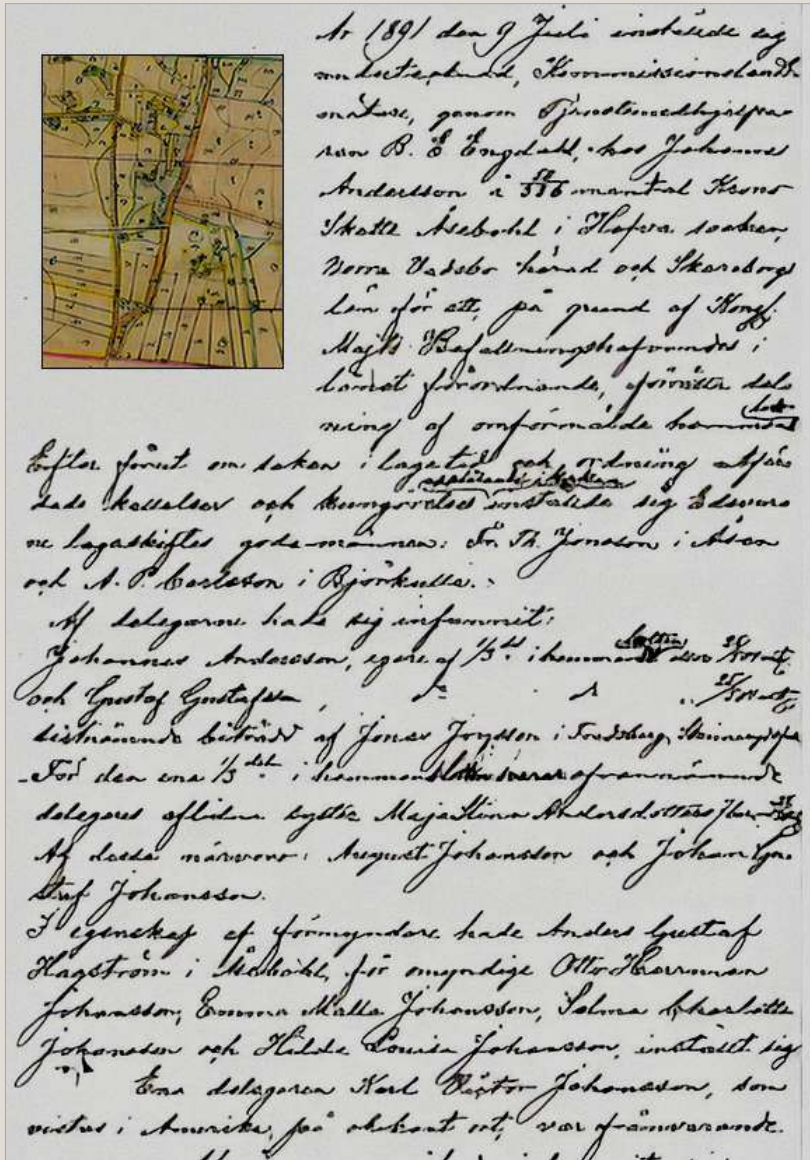 År 1891 den 9 Juli instälde sig
undertecknad, Kommissionslandt-
mätare, genom Tjenstemedhjelpa-
ren B. E Engdahl, hos Johannes
Andersson i 50/576 mantal Krono
Skatte Åsebohl i Hofva socken,
Norra Vadsbo härad och Skaraborgs
län för att, på grund af Kongl.
Majts Befallningshafvandes i
länet förordnande, förrätta del-
ning af omförmälde hemmans
Efter förut om saken i lagstad och ordning utfär-
dade kallelser och kungörelser instälde sig Edsvurne
lagaskiftes gode-männen: Fr. Th. Jonsson i Åsen
och A. P. Carlsson i Björkulla.
Af delegarne hade sig infunnit:
Johannes Andersson, egare af 1/3 del i hemmans
och Gustaf Gustafsson, do do
sistnämnde biträdd af Jonas Jonsson i Fredsberg,
För den ena 1/3 del i hemmans svarar ofvannämnde
delegares aflidna syster Maja Stina Andersdotters
Af dessa närvoro: August Johansson och Johan Gu-
staf Johansson.
I egenskap af förmyndare hade Anders Gustaf
Hagström i Åsebohl, för omyndige Otto Herrman
Johansson, Emma Malla Johansson, Selma Charlotta
Johansson och Hilda Lovisa Johansson, instält sig
Ena delegaren Karl Victor Johansson, som
vistas i Amerika, på okänt ort, var frånvarande.